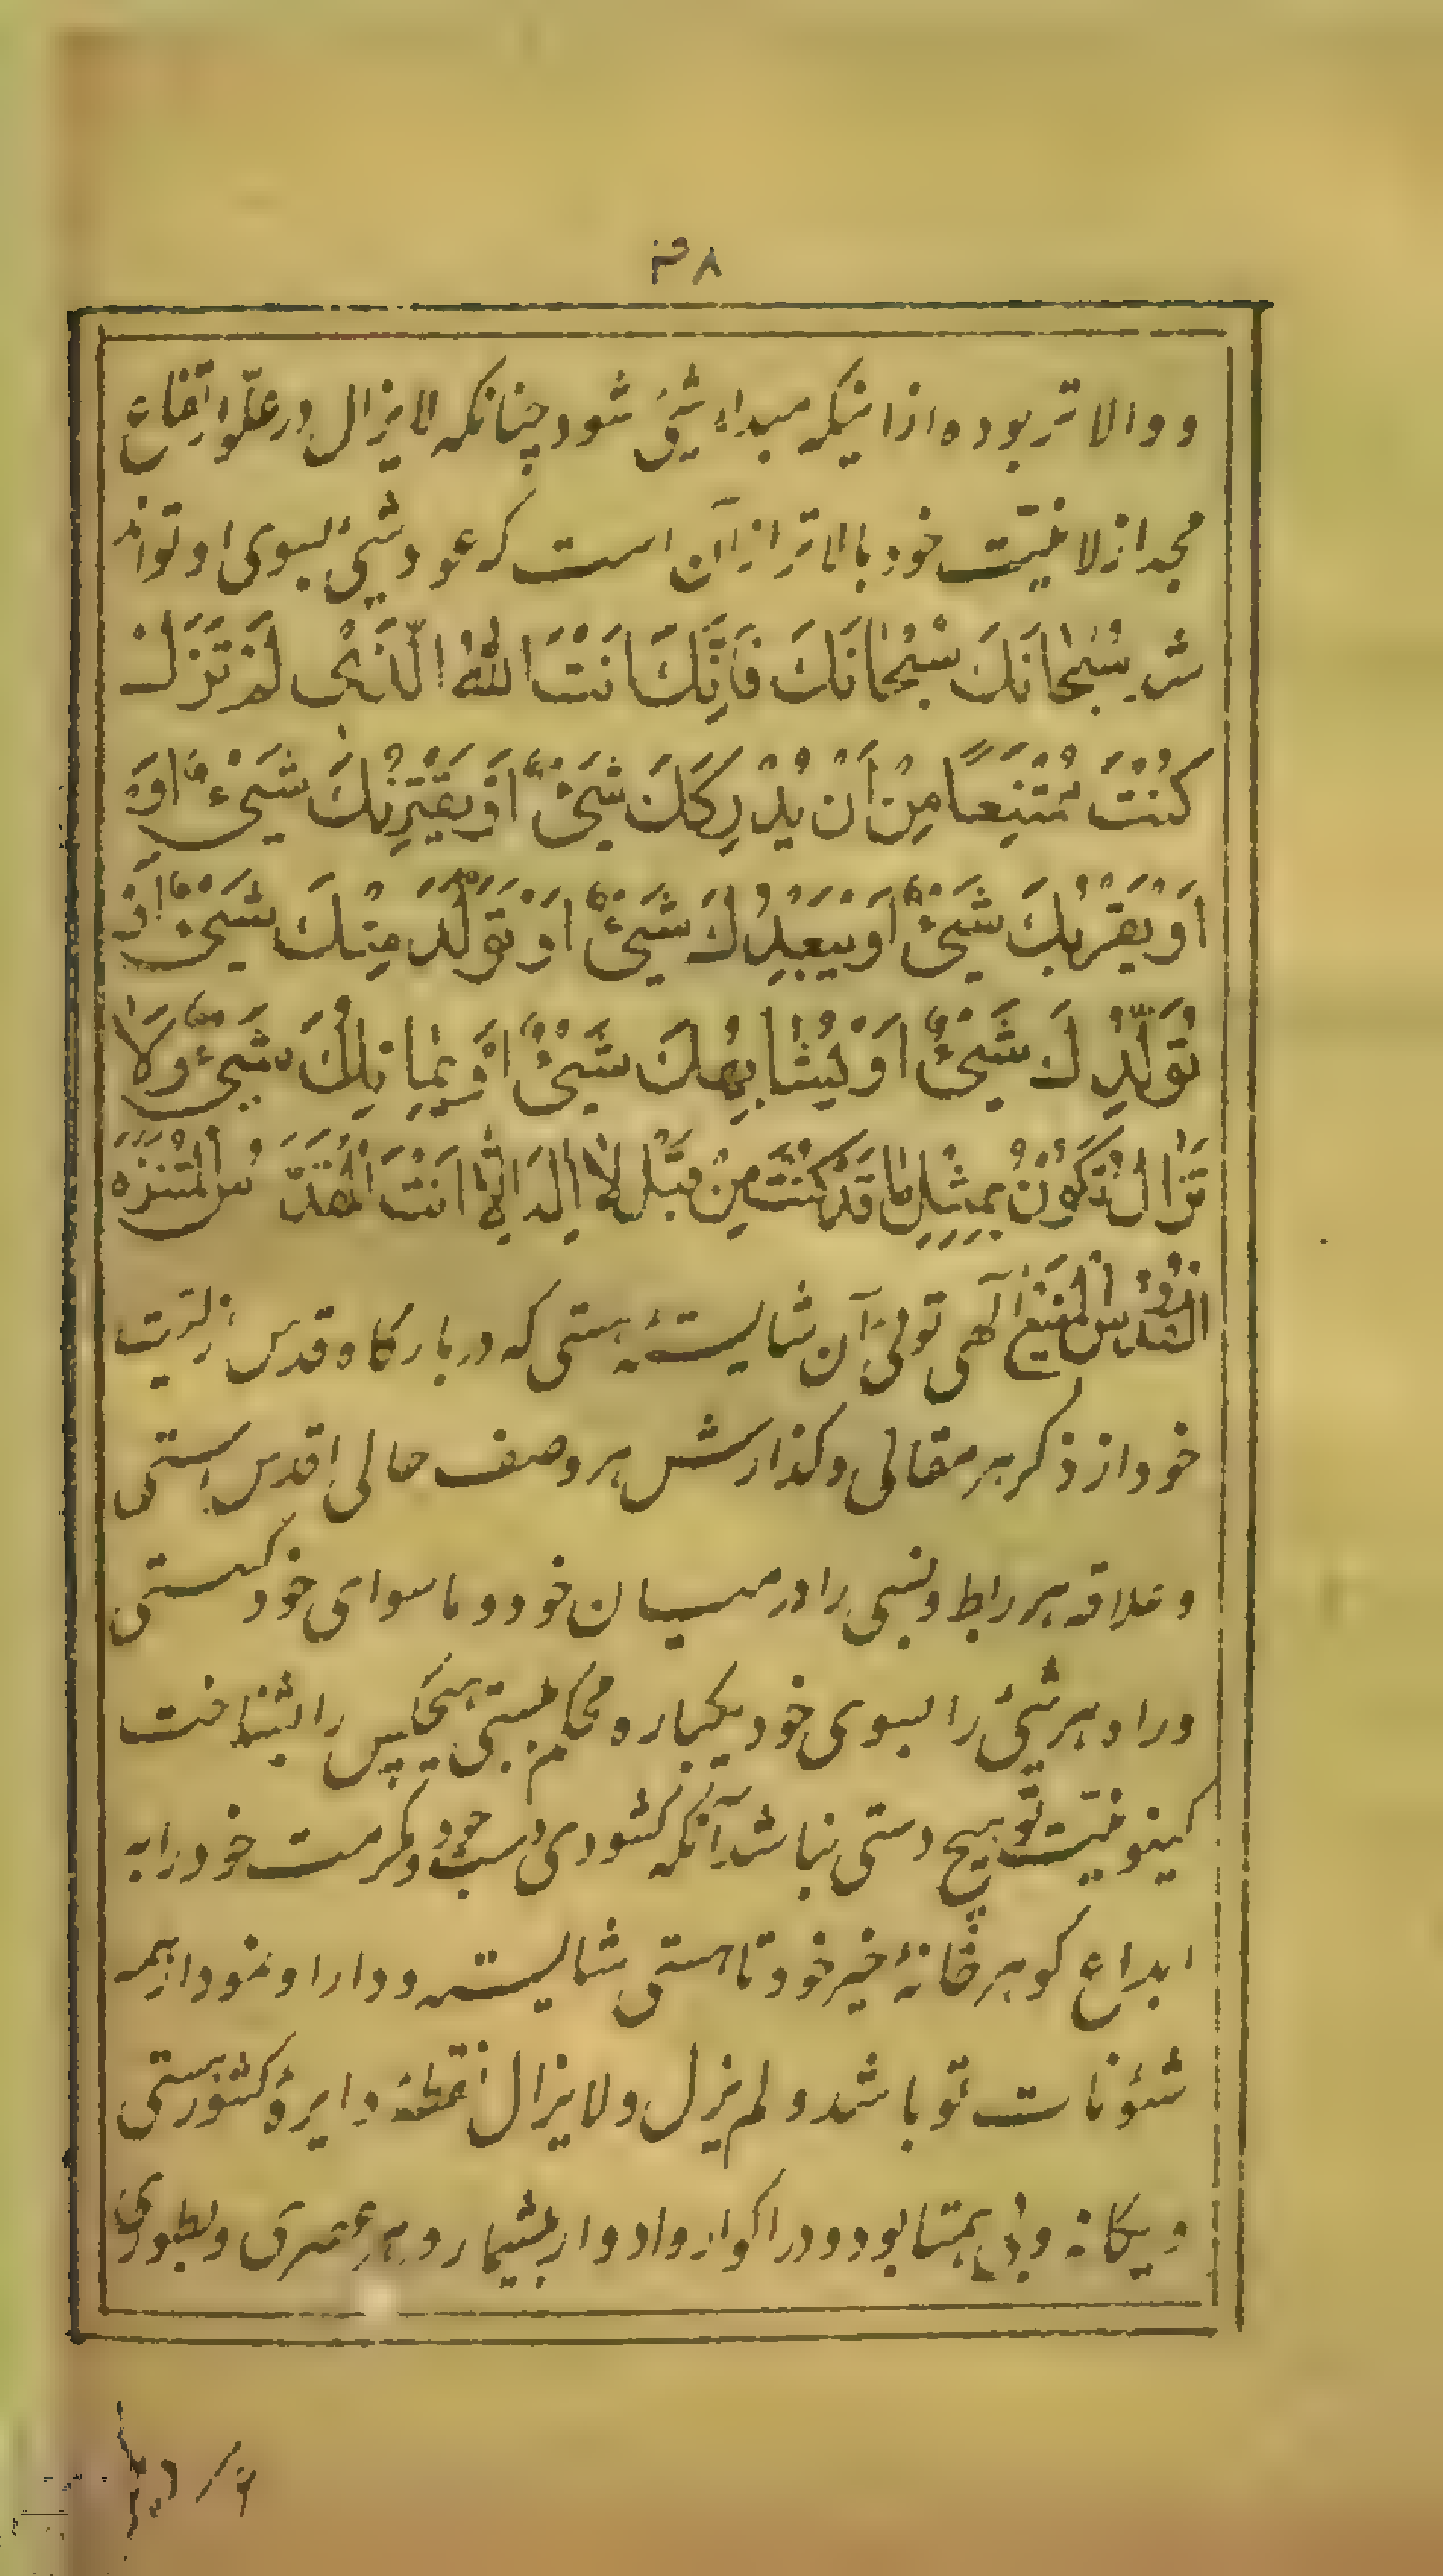 ۸
و والاتر بوده از اینکه مبداء شیئ شود چنانکه لایزال در علّو ارتفاع
مجد ازلانیّت خود بالاتر از آن است که عود شیئ بسوی او تواند
شد سُبْحٰانَكَ سُبْحٰانَكَ فَاِنَّكَ اَنْتَ اللّٰهُ الَّذی لَمْ تَزَلْ
كُنْتَ مُمْتَنِعاً مِنْ اَنْ یُدْرِكَكَ شَیْئٌ اَوْ یَقْتَرِنُكَ شَیْئٌ اَوْ
اَوْ یَقْرُبُكَ شَیْئٌ اَوْ یَبْعِدُكَ شَیْئٌ اَوْ تَوَلَّدَ مِنْكَ شَیْئٌ اَوْ
تُوَلِّدُكَ شَیْئٌ اَوْ یُشٰابِهُكَ شَیْئٌ اَوْ یُمٰاثِلُكَ شَیْئٌ وَلاٰ
تَزٰالُ تَكُونُ بِمِثْلِ مٰا قَدْ كُنْتَ مِنْ قَبْلُ لاٰ اِلٰهَ اِلّاٰ اَنْتَ الْمُقَدَّسُ الْمُتَنَزِّهُ
الْقُدُّسُ الْمَنیعُ آلهی توئی آن شایستهٔ هستی که در بارکاه قدس ازلیّت
خود از ذکر هر مقالی و کذارش هر وصف حالی اقدس استی
و علاقه هر ربط و نسبی را در میسان خود و ماسوای خود کسستی
و راه هر شیئ را بسوی خود یکباره محکم ببستی هیچکس را بشناخت
کینونیّت تو هیچ دستی نباشد آنکه کشودی دست جود و مکرمت خود را به
ابداع کوهر خانهٔ خیر خود تا هستی شایسته و دارا و نمودار همه
شئونات تو باشد و لم یزل و لایزال نقطهٔ دایرهٔ کشور هستی
و یکانه و بی همتا بود و در اکوار و ادوار بیشمار و هر عصری و بطوری